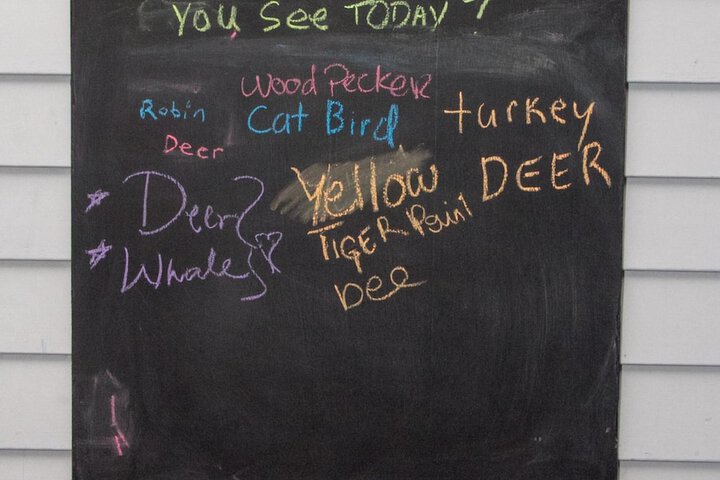 You See TODAY ?
Wood Pecker
Robin
Cat Bird
turkey
Deer
Yellow
DEER
Deer
TIGER
Whale
bee